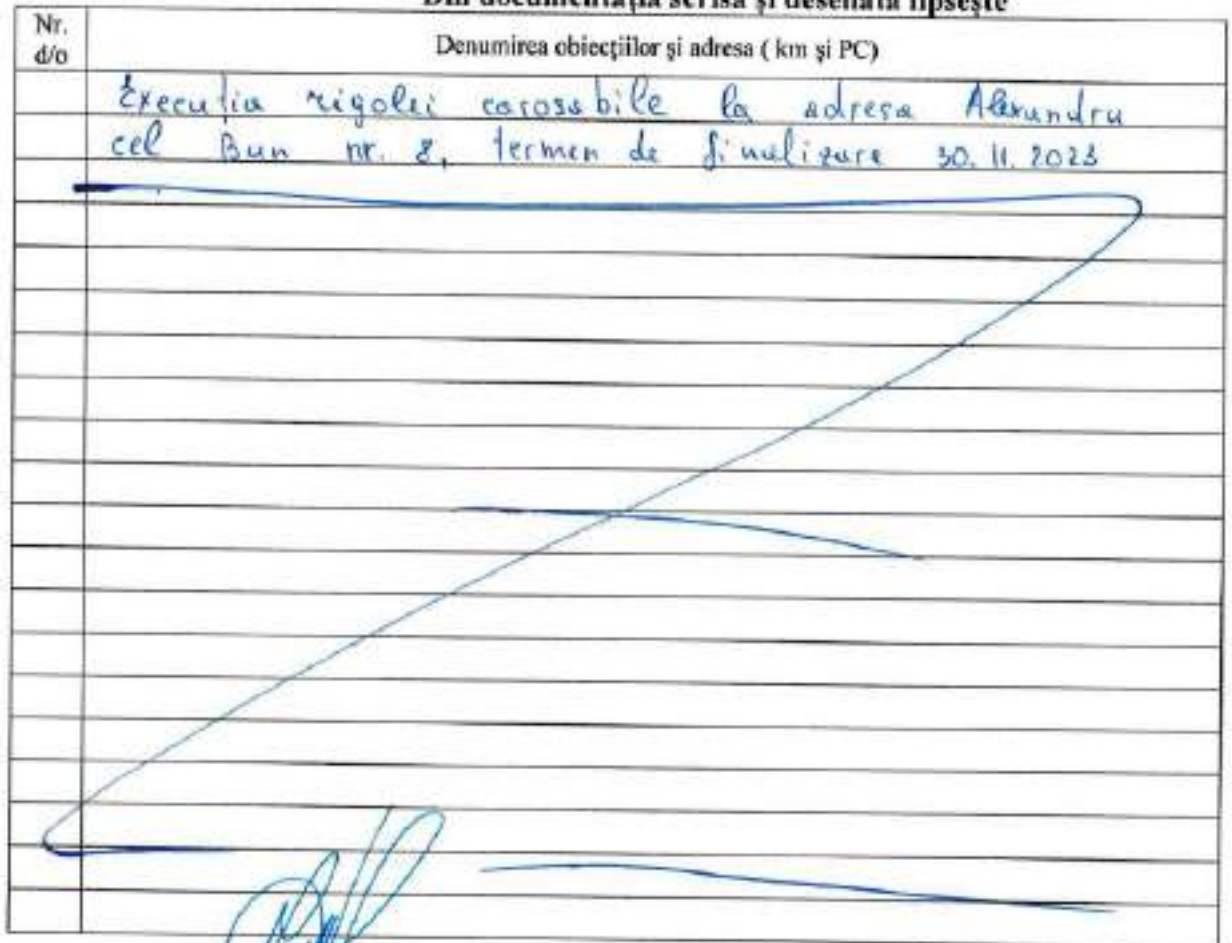 Din documentația scrisă și desenată lipsește
Nr. d/o
Denumirea obiecțiilor și adresa ( km și PC)
Execuția rigolei carosabile la adresa Alexandru
cel Bun nr. 8, termen de finalizare 30. 11. 2023